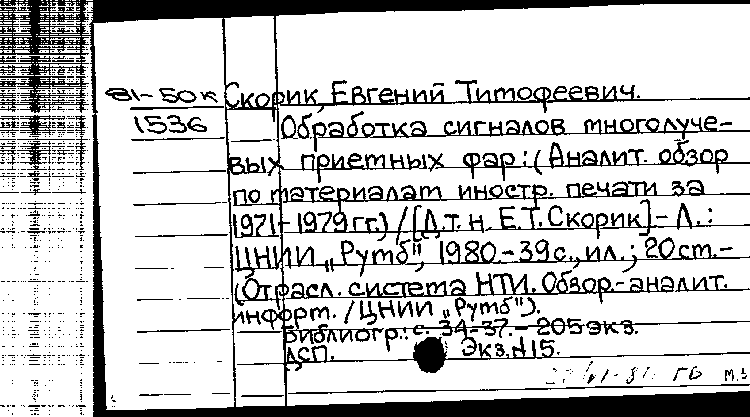 81-50к Скорик, Евгений Титофеевич.
1536 Обработка сигналов многолуче-
вых приетных фар: (Аналит. обзор
по татериалат иностр. печати за
1971-1979 гг.) / [Д.т.н. Е.Т. Скорик] - Л.:
ЦНИИ „Рутб", 1980. - 39 с., ил.; 20 ст. -
(Отрасл. систета НТИ. Обзор.-аналит.
инфорт. / ЦНИИ „Рутб").
Библиогр.: с. 34-37. - 205 экз.
ДСП. Экз. №15.
81 ГБ